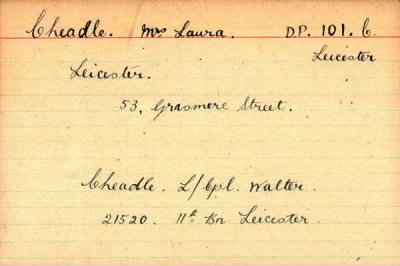 Cheadle. Mrs Laura. D.P. 101. C.
Leicester
Leicester.
53, Grasmere Street.
Cheadle. L/Cpl. Walter.
21520. 11th Bn Leicester.